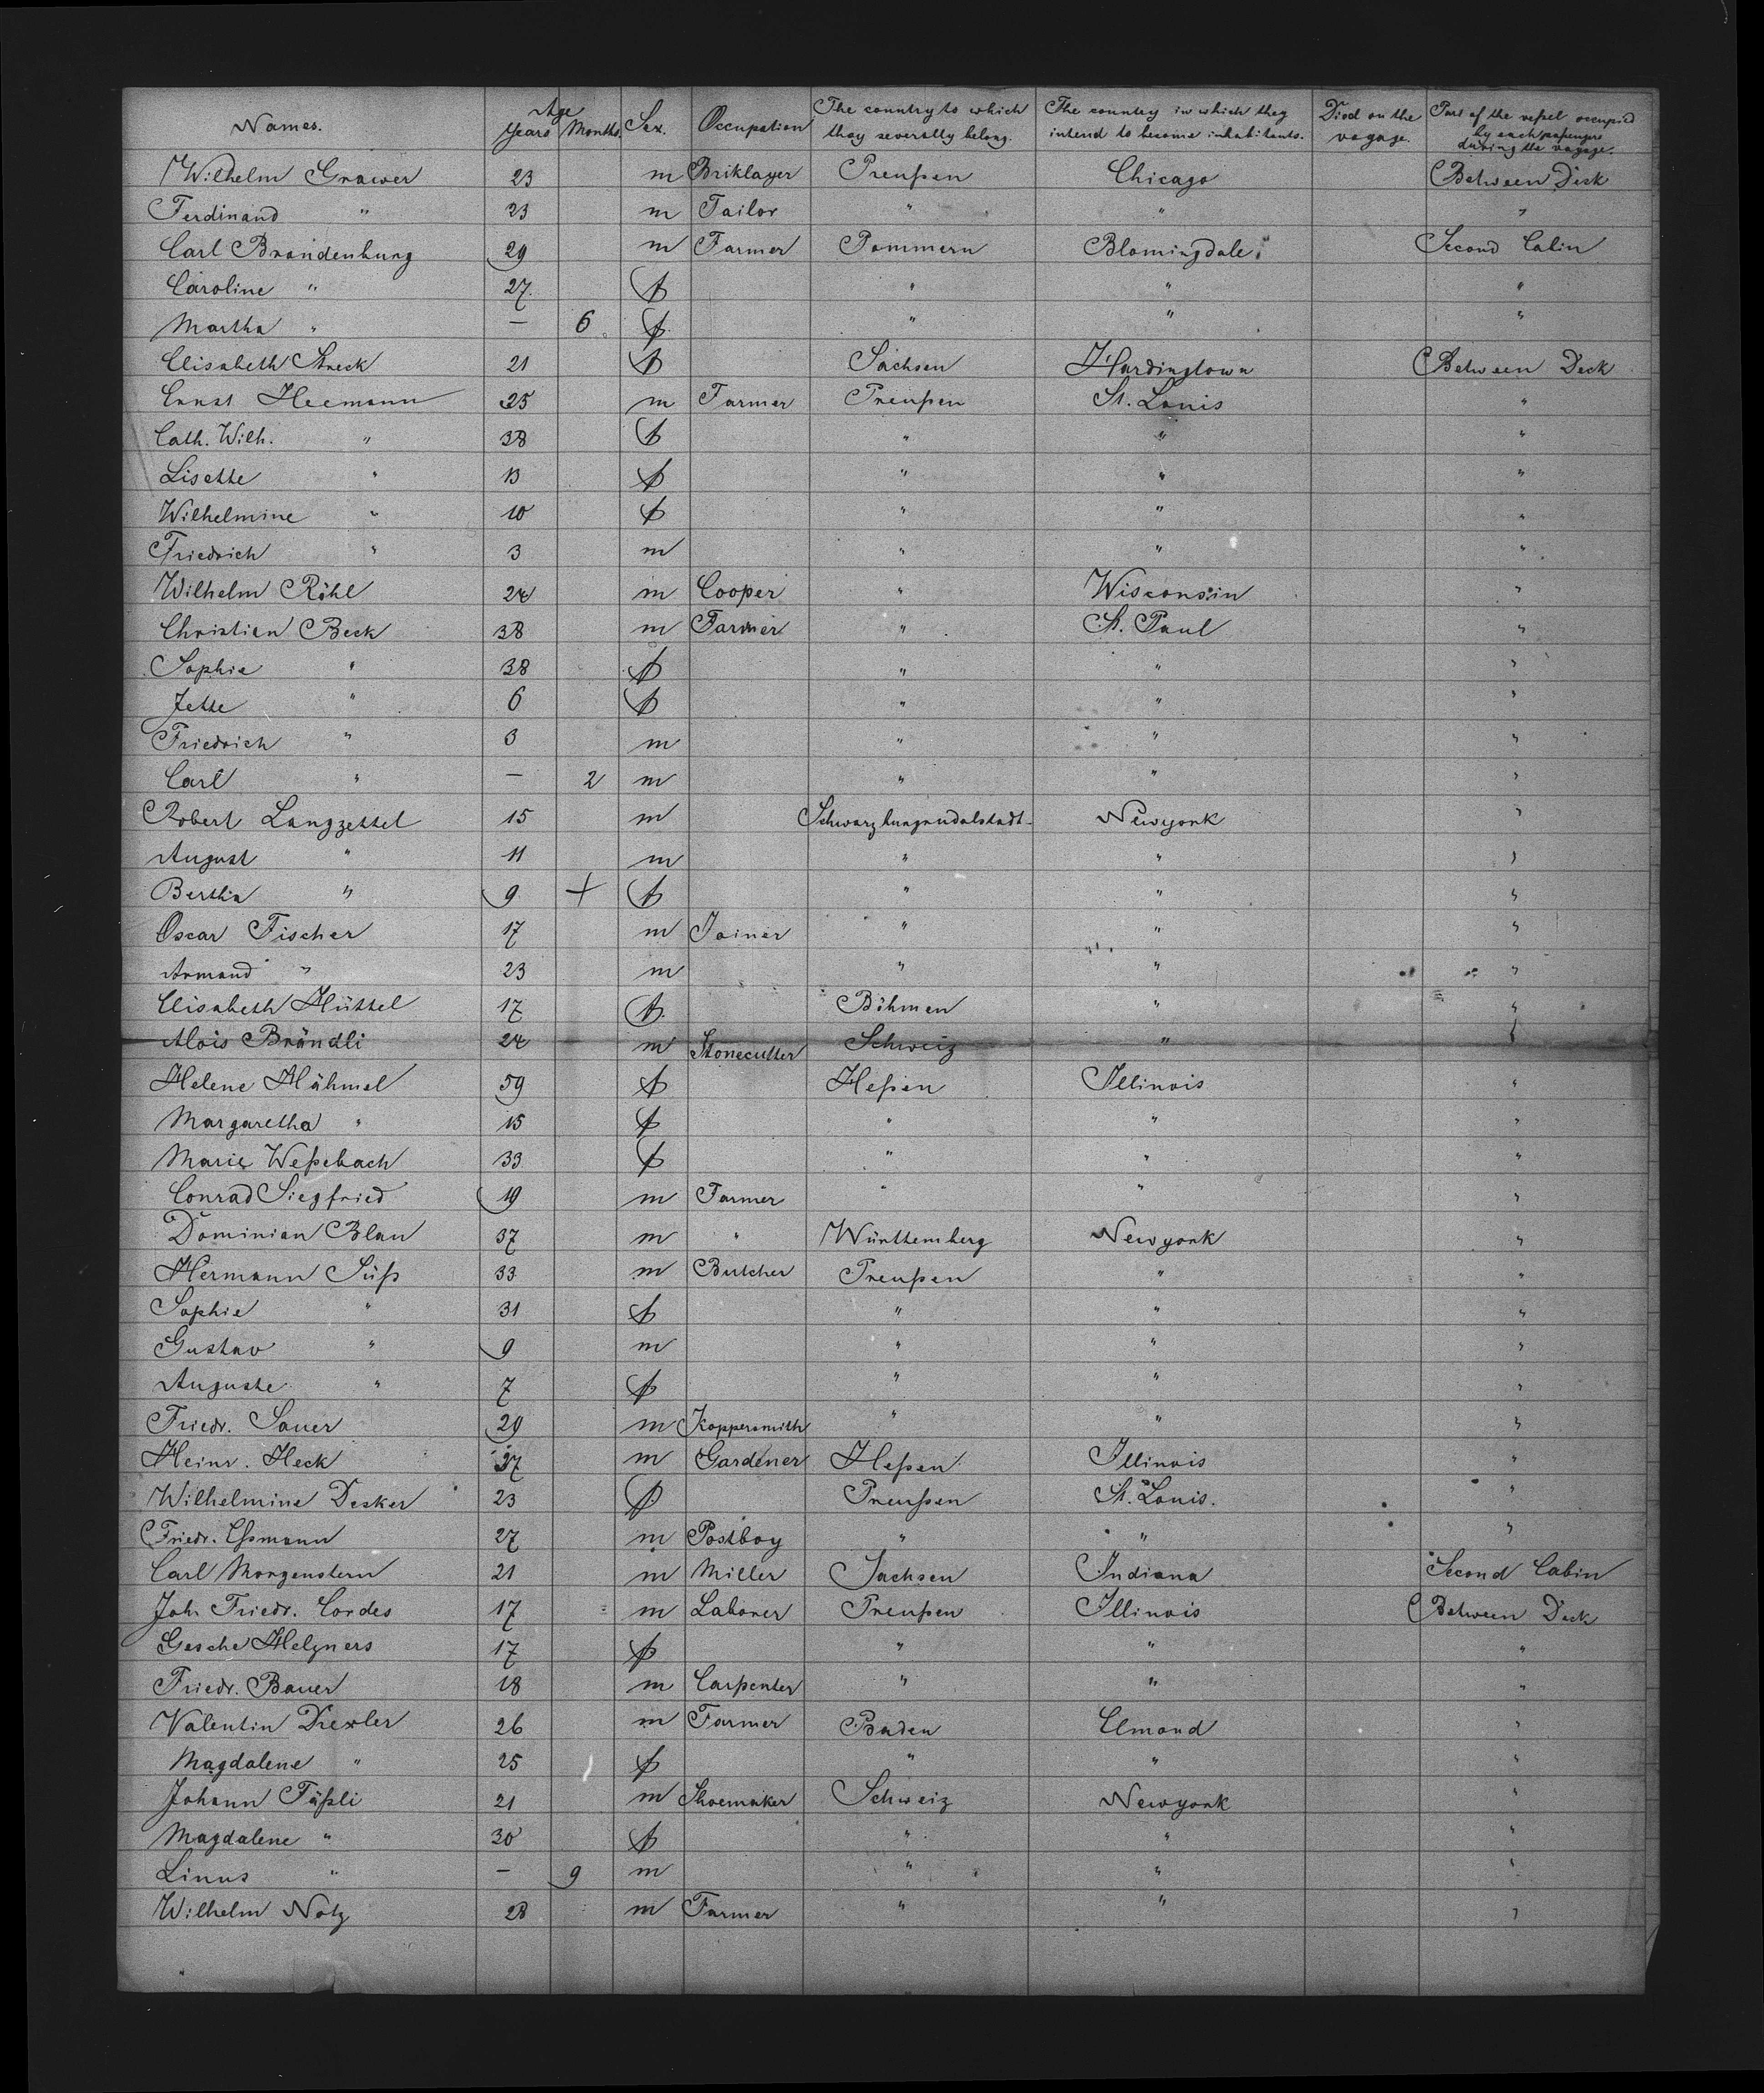 Names. Age Years Months Sex. Occupation The country to which they severally belong. The country in which they intend to become inhabitants. Died on the voyage. Part of the veſsel occupied by each paſsengre during the voyage.
Wilhelm Grawer 23 m Briklayer Preuſsen Chicago Between Deck
Ferdinand " 23 m Tailor " " "
Carl Brandenburg 29 m Farmer Pommern Blomingdale Second Cabin
Caroline " 27 f " " "
Martha " – 6 f " " "
Elisabeth Streck 21 f Sachsen Hardingtown Between Deck
Ernst Heemann 25 m Farmer Preuſsen St. Louis "
Cath. Wilh. " 38 f " " "
Lisette " 13 f " " "
Wilhelmine " 10 f " " "
Friedrich " 3 m " " "
Wilhelm Röhl 24 m Cooper " Wisconsin "
Christian Beck 38 m Farmer " St. Paul "
Sophie " 38 f " " "
Jette " 6 f " " "
Friedrich " 3 m " " "
Carl " – 2 m " " "
Robert Langzettel 15 m Schwarzburgrudolstadt Newyork "
August " 11 m " " "
Bertha " 9 + f " " "
Oscar Fischer 17 m Joiner " " "
Armand " 23 m " " "
Elisabeth Hüttel 17 f Böhmen " "
Alois Brändli 24 m Stonecutter Schweiz " "
Helene Hähmel 59 f Heſsen Illinois "
Margaretha " 15 f " " "
Marie Weſsebach 33 f " " "
Conrad Siegfried 19 m Farmer " " "
Dominian Blau 37 m " Württemberg Newyork "
Hermann Süſs 33 m Butcher Preuſsen " "
Sophie " 31 f " " "
Gustav " 9 m " " "
Auguste " 7 f " " "
Friedr. Sauer 29 m Koppersmith " " "
Heinr. Heck 37 m Gardener Heſsen Illinois "
Wilhelmine Desker 23 f Preuſsen St. Louis. "
Friedr. Eſsmann 27 m Postboy " " "
Carl Morgenstern 21 m Miller Sachsen Indiana Second Cabin
Joh. Friedr. Cordes 17 m Laborer Preuſsen Illinois Between Deck
Gesche Helgners 17 f " " "
Friedr. Bauer 18 m Carpenter " " "
Valentin Drexler 26 m Farmer Baden Elmond "
Magdalene " 25 f " " "
Johann Fäſsli 21 m Shoemaker Schweiz Newyork "
Magdalene " 30 f " " "
Linus " – 9 m " " "
Wilhelm Notz 28 m Farmer " " "